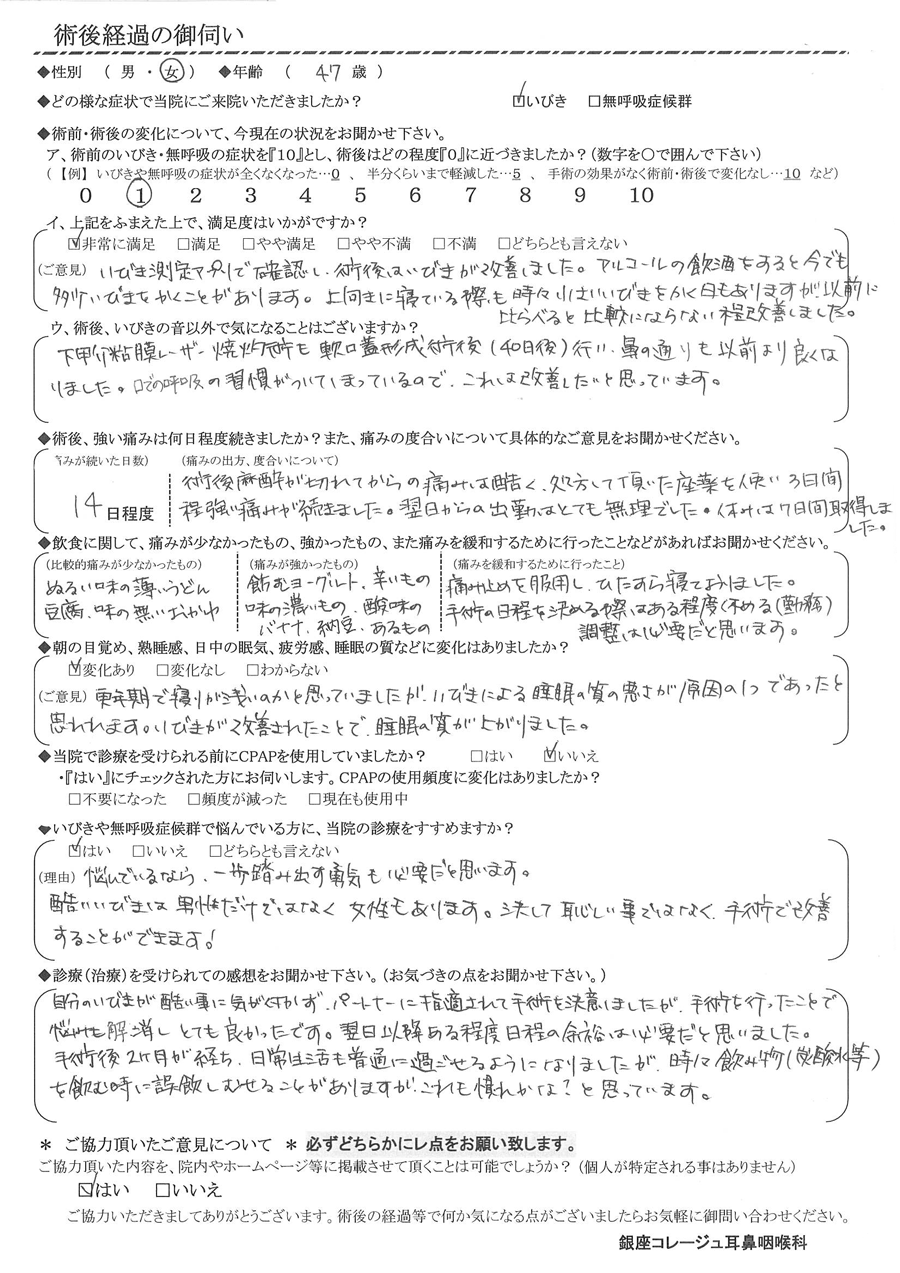 術後経過の御伺い
◆性別 ( 男 ・ 女 ) ◆年齢 ( 47 歳 )
◆どの様な症状で当院にご来院いただきましたか? ☑いびき □無呼吸症候群
◆術前・術後の変化について、今現在の状況をお聞かせ下さい。
ア、術前のいびき・無呼吸の症状を『10』とし、術後はどの程度『0』に近づきましたか?(数字を〇で囲んで下さい)
(【例】いびきや無呼吸の症状が全くなくなった…0 、 半分くらいまで軽減した…5 、 手術の効果がなく術前・術後で変化なし…10 など)
0 1 2 3 4 5 6 7 8 9 10
イ、上記をふまえた上で、満足度はいかがですか?
☑非常に満足 □満足 □やや満足 □やや不満 □不満 □どちらとも言えない
(ご意見) いびき測定アプリで確認し、術後はいびきが改善しました。アルコールの飲酒をすると今でも
多少いびきをかくことがあります。上向きに寝ている際も時々小さいいびきをかく日もありますが、以前に
比らべると比較にならない程改善しました。
ウ、術後、いびきの音以外で気になることはございますか?
下甲介粘膜レーザー焼灼術も軟口蓋形成術後(40日後)行い、鼻の通りも以前より良くな
りました。口での呼吸の習慣がついてしまっているので、これは改善したいと思っています。
◆術後、強い痛みは何日程度続きましたか?また、痛みの度合いについて具体的なご意見をお聞かせください。
痛みが続いた日数) (痛みの出方、度合いについて)
14日程度
術後麻酔が切れてからの痛みは酷く、処方して頂いた座薬を使い3日間
程強い痛みが続きました。翌日からの出勤はとても無理でした。休みは7日間取得しま
した。
◆飲食に関して、痛みが少なかったもの、強かったもの、また痛みを緩和するために行ったことなどがあればお聞かせください。
(比較的痛みが少なかったもの) (痛みが強かったもの) (痛みを緩和するために行ったこと)
ぬるい味の薄いうどん
豆腐、味の無いおかゆ
飲むヨーグルト、辛いもの
味の濃いもの、酸味の
バナナ、納豆、あるもの
痛み止めを服用し、ひたすら寝てよう​​​​ました。
手術の日程を決める際はある程度休める(勤務)
調整は必要だと思います。
◆朝の目覚め、熟睡感、日中の眠気、疲労感、睡眠の質などに変化はありましたか?
☑変化あり □変化なし □わからない
(ご意見) 更年期で寝りが浅いのかと思っていましたが、いびきによる睡眠の質の悪さが原因の1つであったと
思われます。いびきが改善されたことで、睡眠の質が上がりました。
◆当院で診療を受けられる前にCPAPを使用していましたか? □はい ☑いいえ
・『はい』にチェックされた方にお伺いします。CPAPの使用頻度に変化はありましたか?
□不要になった □頻度が減った □現在も使用中
◆いびきや無呼吸症候群で悩んでいる方に、当院の診療をすすめますか?
☑はい □いいえ □どちらとも言えない
(理由) 悩んでいるなら、一歩踏み出す勇気も必要だと思います。
酷いいびきは男性だけではなく女性もあります。決して恥しい事ではなく、手術で改善
することができます!
◆診療(治療)を受けられての感想をお聞かせ下さい。(お気づきの点をお聞かせ下さい。)
自分のいびきが酷い事に気が付かず、パートナーに指適されて手術を決意しましたが、手術を行ったことで
悩みも解消しとても良かったです。翌日以降ある程度日程の余裕は必要だと思いました。
手術後2ヶ月が経ち、日常生活も普通に過ごせるようになりましたが、時々飲み物(炭酸水等)
を飲む時に誤飲しむせることがありますが、これも慣れかな?と思っています。
＊ ご協力頂いたご意見について ＊ 必ずどちらかにレ点をお願い致します。
ご協力頂いた内容を、院内やホームページ等に掲載させて頂くことは可能でしょうか?(個人が特定される事はありません)
☑はい □いいえ
ご協力いただきましてありがとうございます。術後の経過等で何か気になる点がございましたらお気軽に御問い合わせください。
銀座コレージュ耳鼻咽喉科